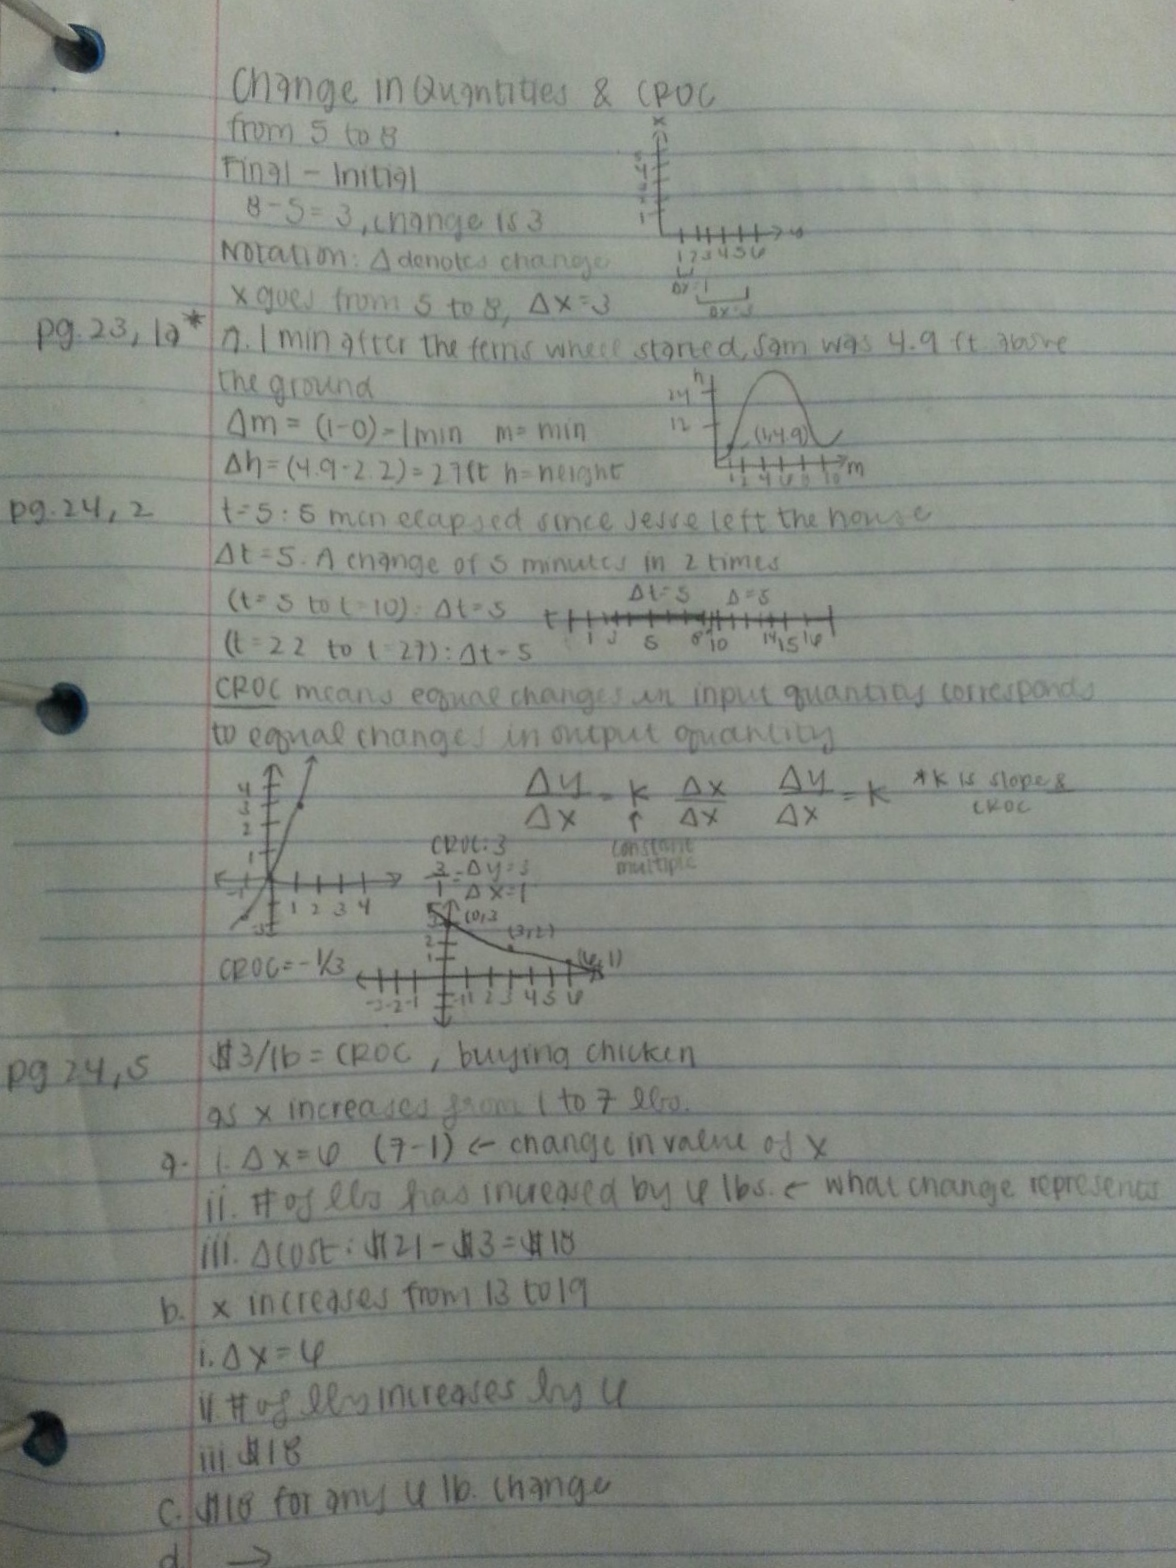 Change in Quantities & CROC
from 5 to 8
Final - Initial
8-5=3, change is 3
Notation: Δ denotes change
x goes from 5 to 8, Δx=3
pg. 23, 1a* a. 1 min after the ferris wheel started, Sam was 4.9 ft above
the ground
Δm = (1-0) = 1 min m = min
Δh = (4.9-2.2) = 2.7 ft h = height
h
24
12
m
pg. 24, 2 t=5: 5 min elapsed since Jesse left the house
Δt=5. A change of 5 minutes in 2 times
(t=5 to t=10): Δt=5
Δt=5 Δ=5
(t=22 to t=27): Δt=5
CROC means equal changes in input quantity corresponds
to equal changes in output quantity
Δy/Δx = k Δx/Δx Δy/Δx = k *k is slope & CROC
constant
multiple
4
3
2
1
1 2 3 4
CROC: 3
3/1 = Δy=3/Δx=1
(0,3
(3,2)
(6,1)
CROC = -1/3
pg 24, 5 $3/lb = CROC, buying chicken
as x increases from 1 to 7 lbs.
a. i. Δx=6 (7-1) ← change in value of x
ii. # of lbs has increased by 6 lbs. ← what change represents
iii. Δcost: $21-$3=$18
b. x increases from 13 to 19
i. Δx=6
ii # of lbs increases by 6
iii. $18
c. $18 for any 6 lb. change
d. →